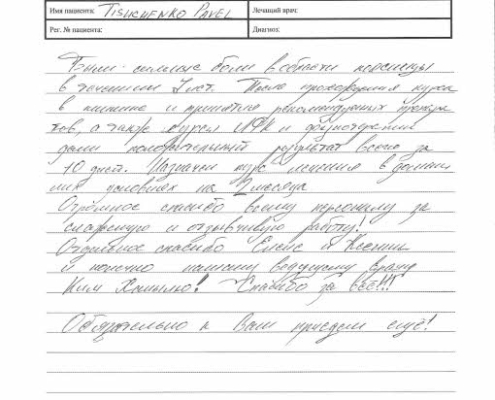 Имя пациента: TISHCHENKO PAVEL Лечащий врач:
Рег. № пациента: Диагноз:
Были сильные боли в области поясницы
в течении 7 лет. После прохождения курса
в клинике и принятия рекомендуемых препара
тов, а также курса ЛФК и физиотерапии
дали положительный результат всего за
10 дней. Назначен курс лечения в домаш
них условиях на 2 месяца
Огромное спасибо всему персоналу за
слаженную и отзывчивую работу!
Отдельное спасибо Елене и Ксении
и конечно нашему ведущему врачу
Ким! Спасибо за всё!!!
Обязательно к Вам приедем ещё!